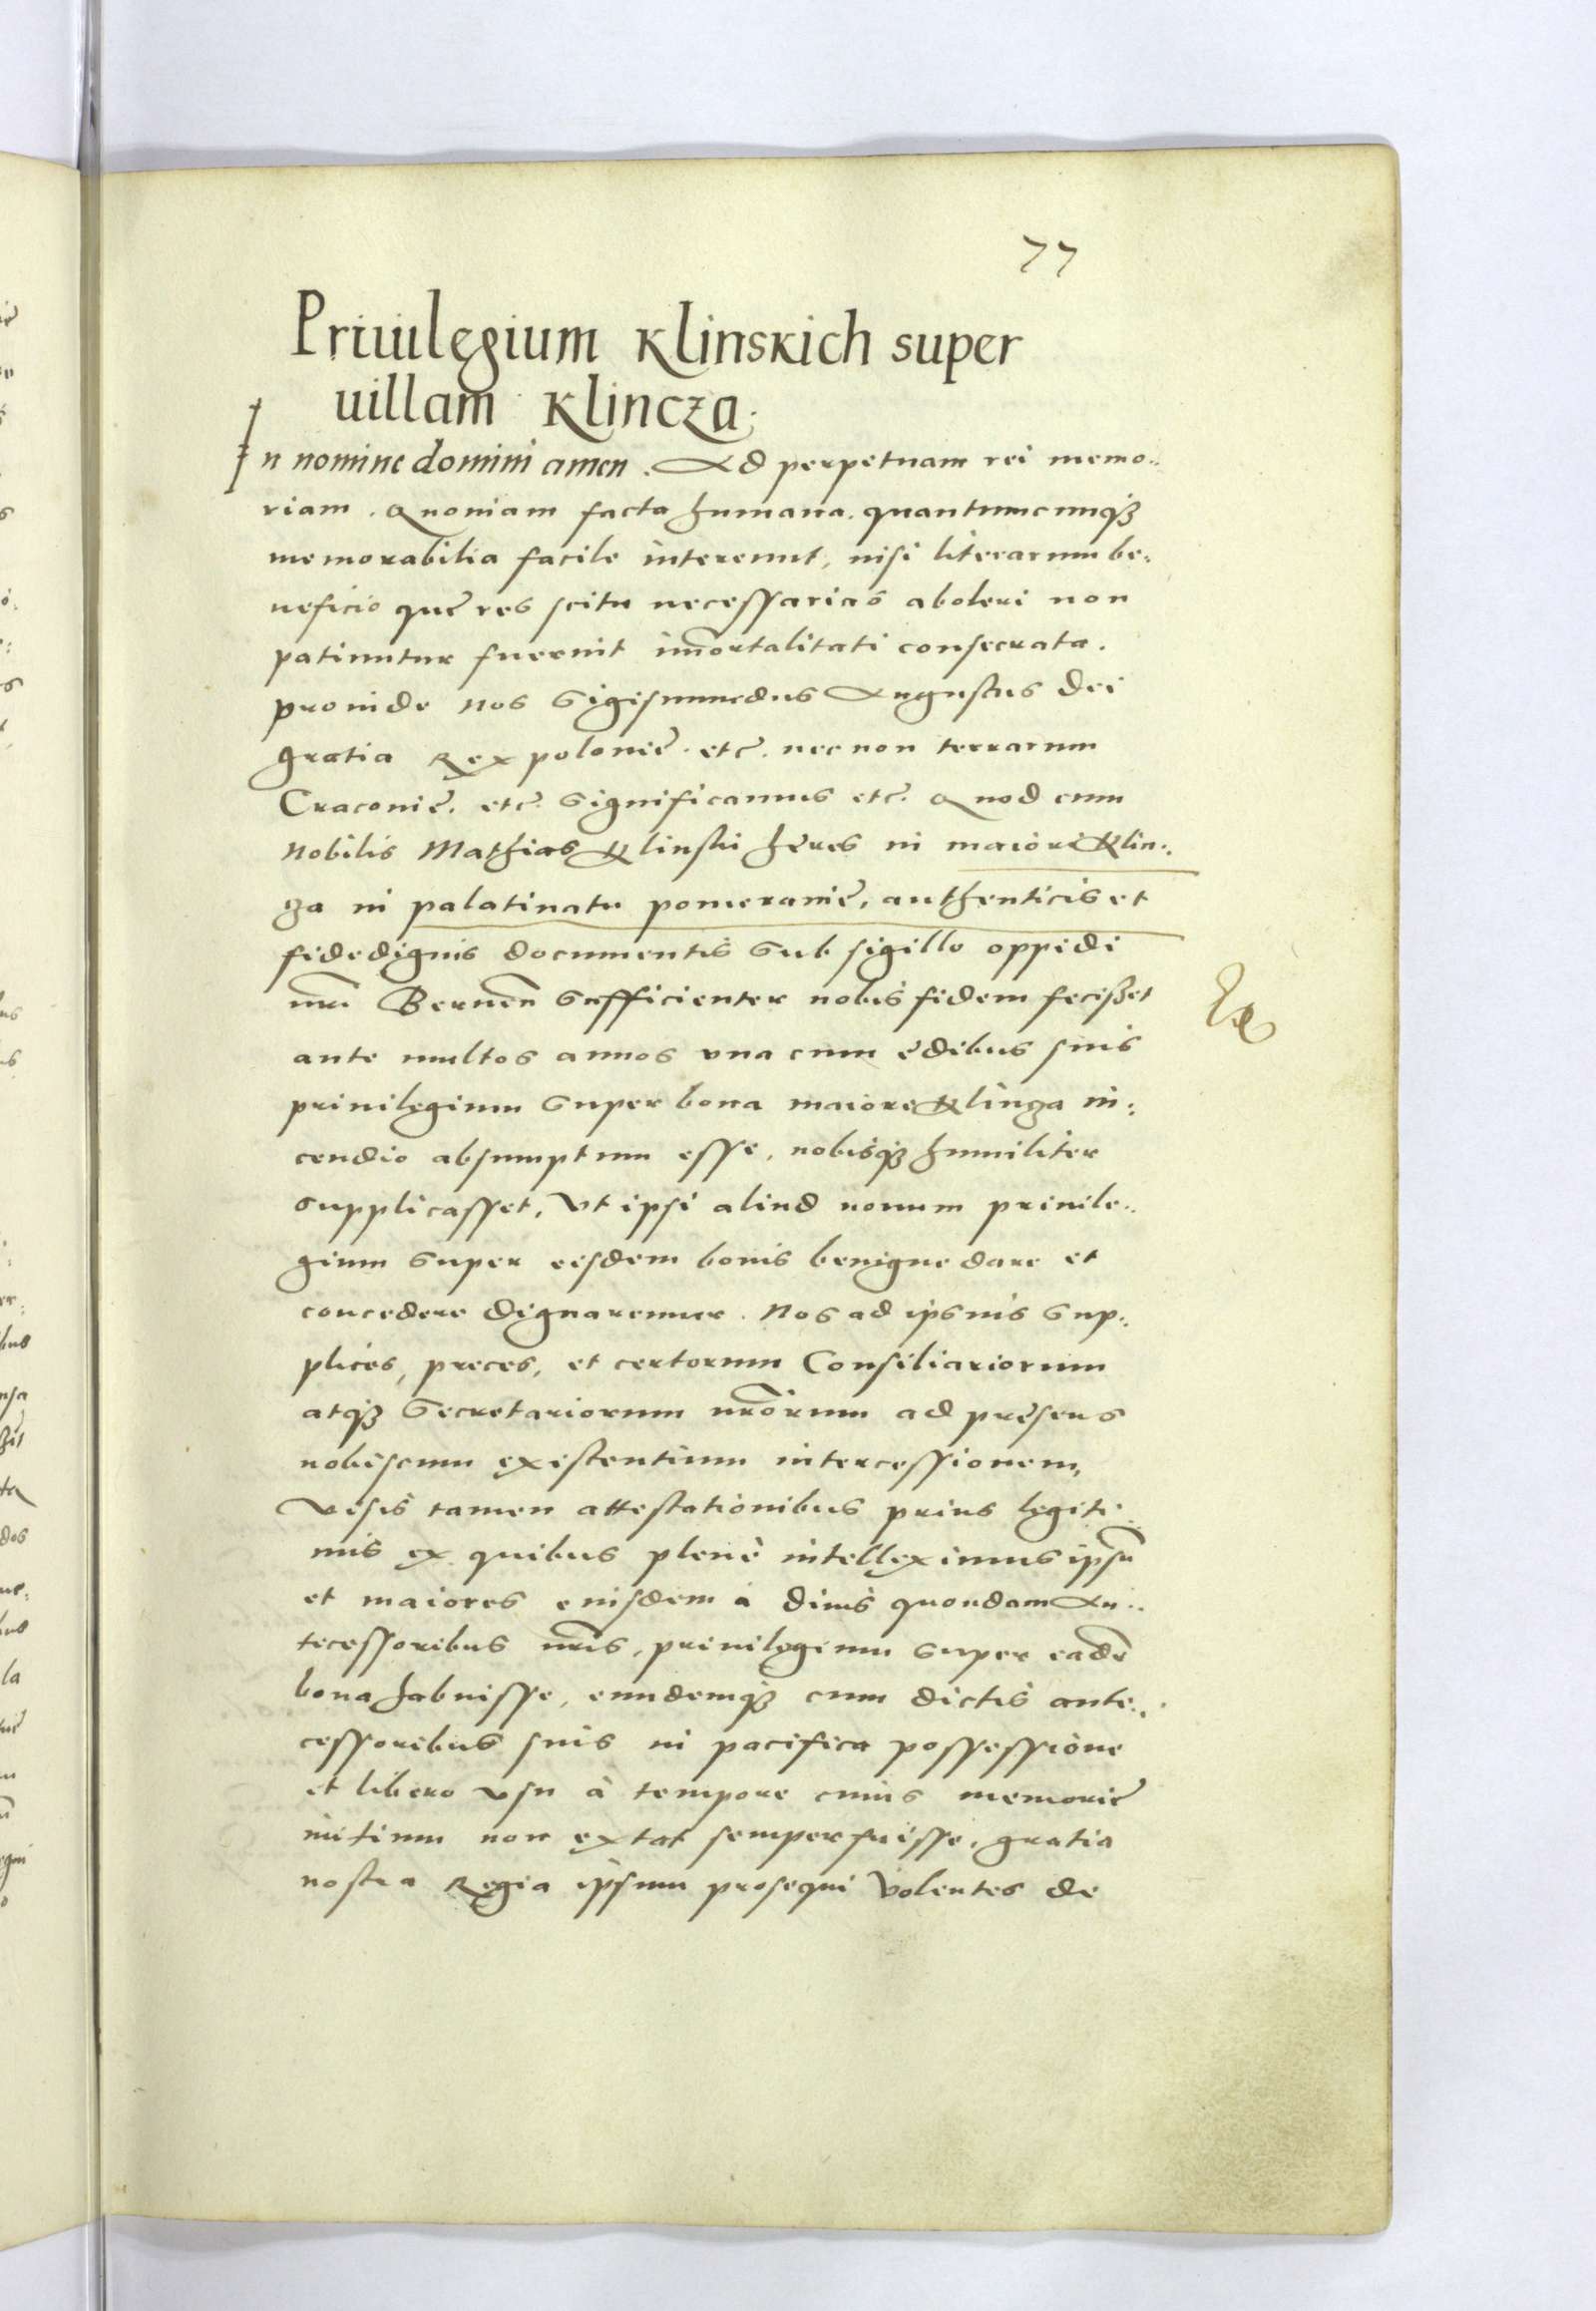 77
Priuilegium Klinskich super
uillam Klincza.
In nomine domini amen. Ad perpetuam rei memo..
riam. Quoniam facta humana. quantumcunqȝ
memorabilia facile intereunt, nisi literarum be:
neficio quę res scitu necessarias aboleri non
patiuntur fuerint im̄ortalitati consecrata.
prouide Nos Sigismundus Augustus dei
gratia Rex polonię. etc̃. nec non terrarum
Craconię. etc̃. Significamus etc̃. Quod cum
Nobilis Mathias Klinski hęres in maiori Klin:
ga in palatinatu pomeranię, authenticis et
fidedignis documentis sub sigillo oppidi
nr̄i Bernen̄ sufficienter nobis fidem fecisßet
ante multos annos vna cum ędibus suis
priuilegium super bona maiore Klinga in:
cendio absumptum esse, nobisqȝ humiliter
supplicasset, Vt ipsi aliud nouum priuile..
gium super eisdem bonis benigne dare et
concedere dignaremur. Nos ad ipsius sup:
plices, preces, et certorum Consiliariorum
atqȝ Secretariorum nr̄orum ad pręsens
nobiscum existentium intercessionem,
Visis tamen attestationibus prius legiti:
mis ex quibus plenè intelleximus ipsū
et maiores eiusdem à diuis quondam An:
tecessoribus nr̄is, priuilegium super eadē
bona habuisse, eundemqȝ cum dictis ante:
cessoribus suis in pacifica possessione
et libero vsu à tempore cuius memorię
initium non extat semper fuisse, gratia
nostra Regia ipsum prosequi Volentes de